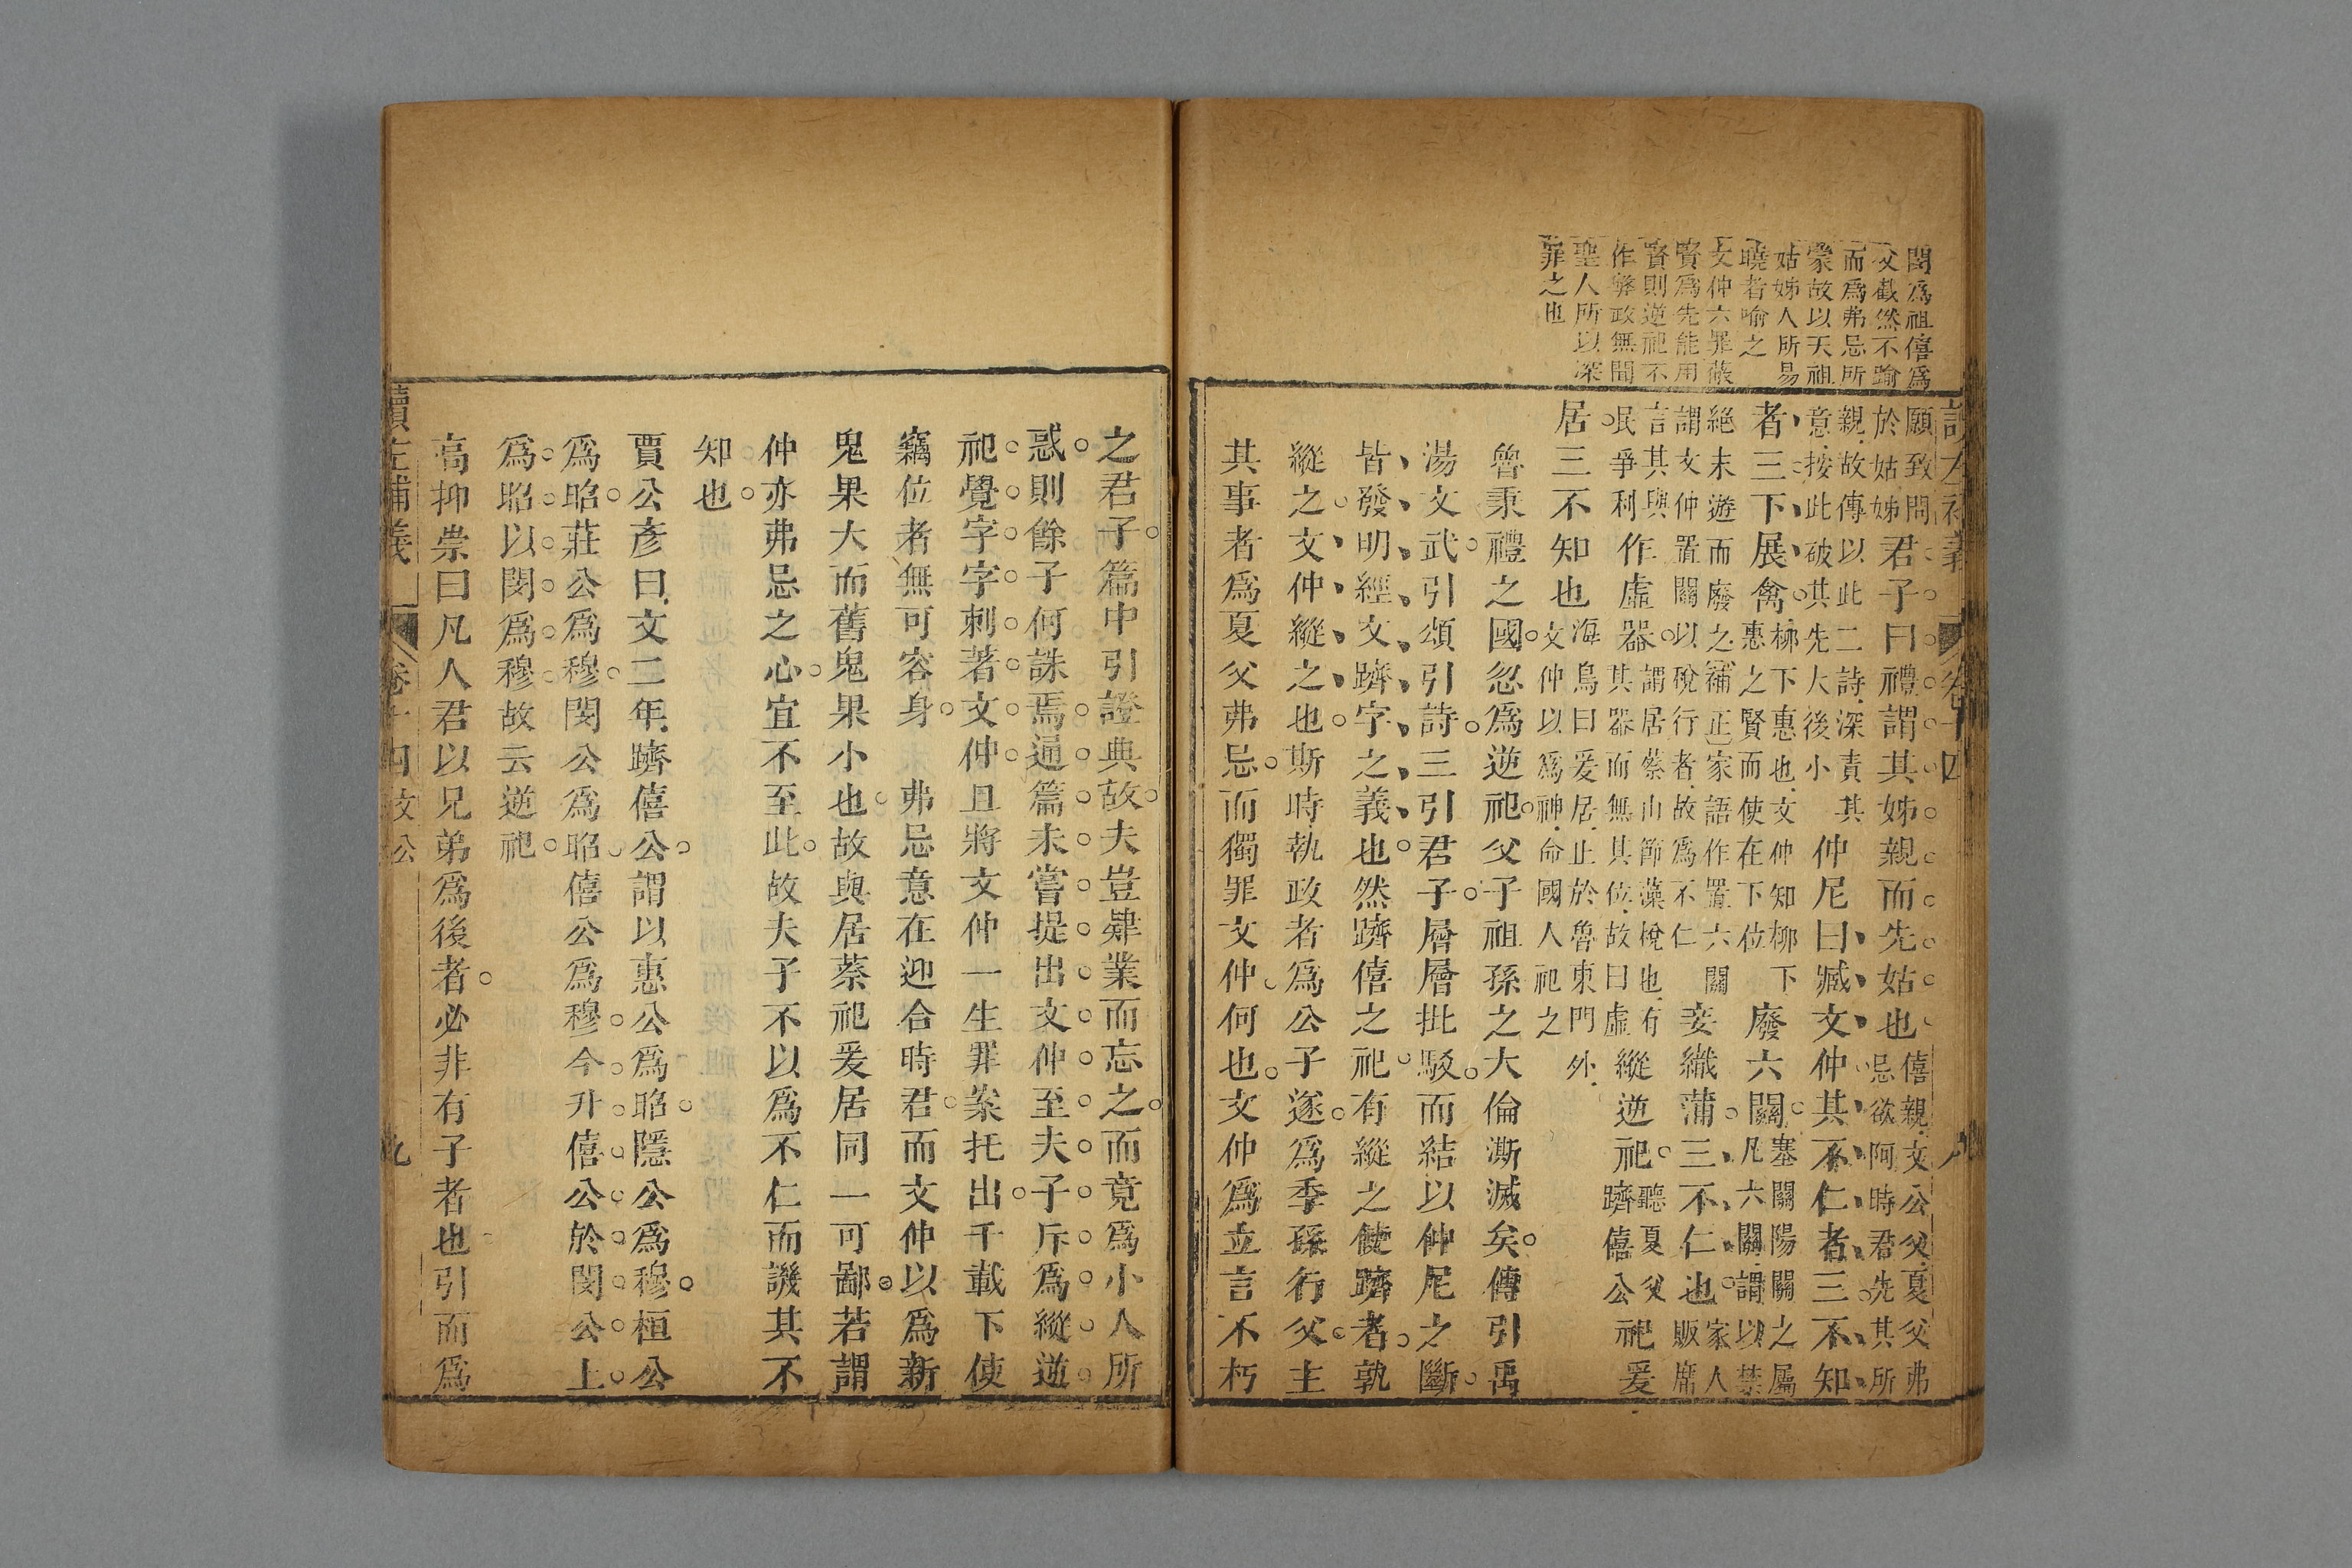 閔爲祖僖爲
父截然不踰
而爲弗忌所
蒙故以天祖
姑姊人所易
曉者喻之
文仲六罪蔽
賢爲先能用
賢則逆祀不
作弊政無聞
聖人所以深
罪之也
願致問
於姑姊君子曰禮謂其姊親而先姑也僖親文公父夏父弗
忌欲阿時君先其所
親故傳以此二詩深責其
意按此破其先大後小仲尼曰臧文仲其不仁者三不知
者三下展禽柳下惠也文仲知柳下
惠之賢而使在下位廢六關塞關陽關之屬
凡六關謂以禁
絕末遊而廢之補正家語作置六關
謂文仲置關以稅行者故爲不仁妾織蒲三不仁也家人
販席
言其與
民爭利作虛器謂居蔡山節藻梲也有
其器而無其位故曰虛縱逆祀聽夏父
躋僖公祀爰
居三不知也海鳥曰爰居止於魯東門外
文仲以爲神命國人祀之
魯秉禮之國忽爲逆祀父子祖孫之大倫澌滅矣傳引禹
湯文武引頌引詩三引君子層層批駁而結以仲尼之斷
皆發明經文躋字之義也然躋僖之祀有縱之使躋者孰
縱之文仲縱之也斯時執政者爲公子遂爲季孫行父主
其事者爲夏父弗忌而獨罪文仲何也文仲爲立言不朽
讀左補義 卷十四 八
之君子篇中引證典故夫豈肄業而忘之而竟爲小人所
惑則餘子何誅焉通篇未嘗提出文仲至夫子斥爲縱逆
祀覺字字刺著文仲且將文仲一生罪案托出千載下使
竊位者無可容身 弗忌意在迎合時君而文仲以爲新
鬼果大而舊鬼果小也故與居蔡祀爰居同一可鄙若謂
仲亦弗忌之心宜不至此故夫子不以爲不仁而譏其不
知也
賈公彥曰文二年躋僖公謂以惠公爲昭隱公爲穆桓公
爲昭莊公爲穆閔公爲昭僖公爲穆今升僖公於閔公上
爲昭以閔爲穆故云逆祀
高抑崇曰凡人君以兄弟爲後者必非有子者也引而爲
讀左補義 卷十四 文公 九